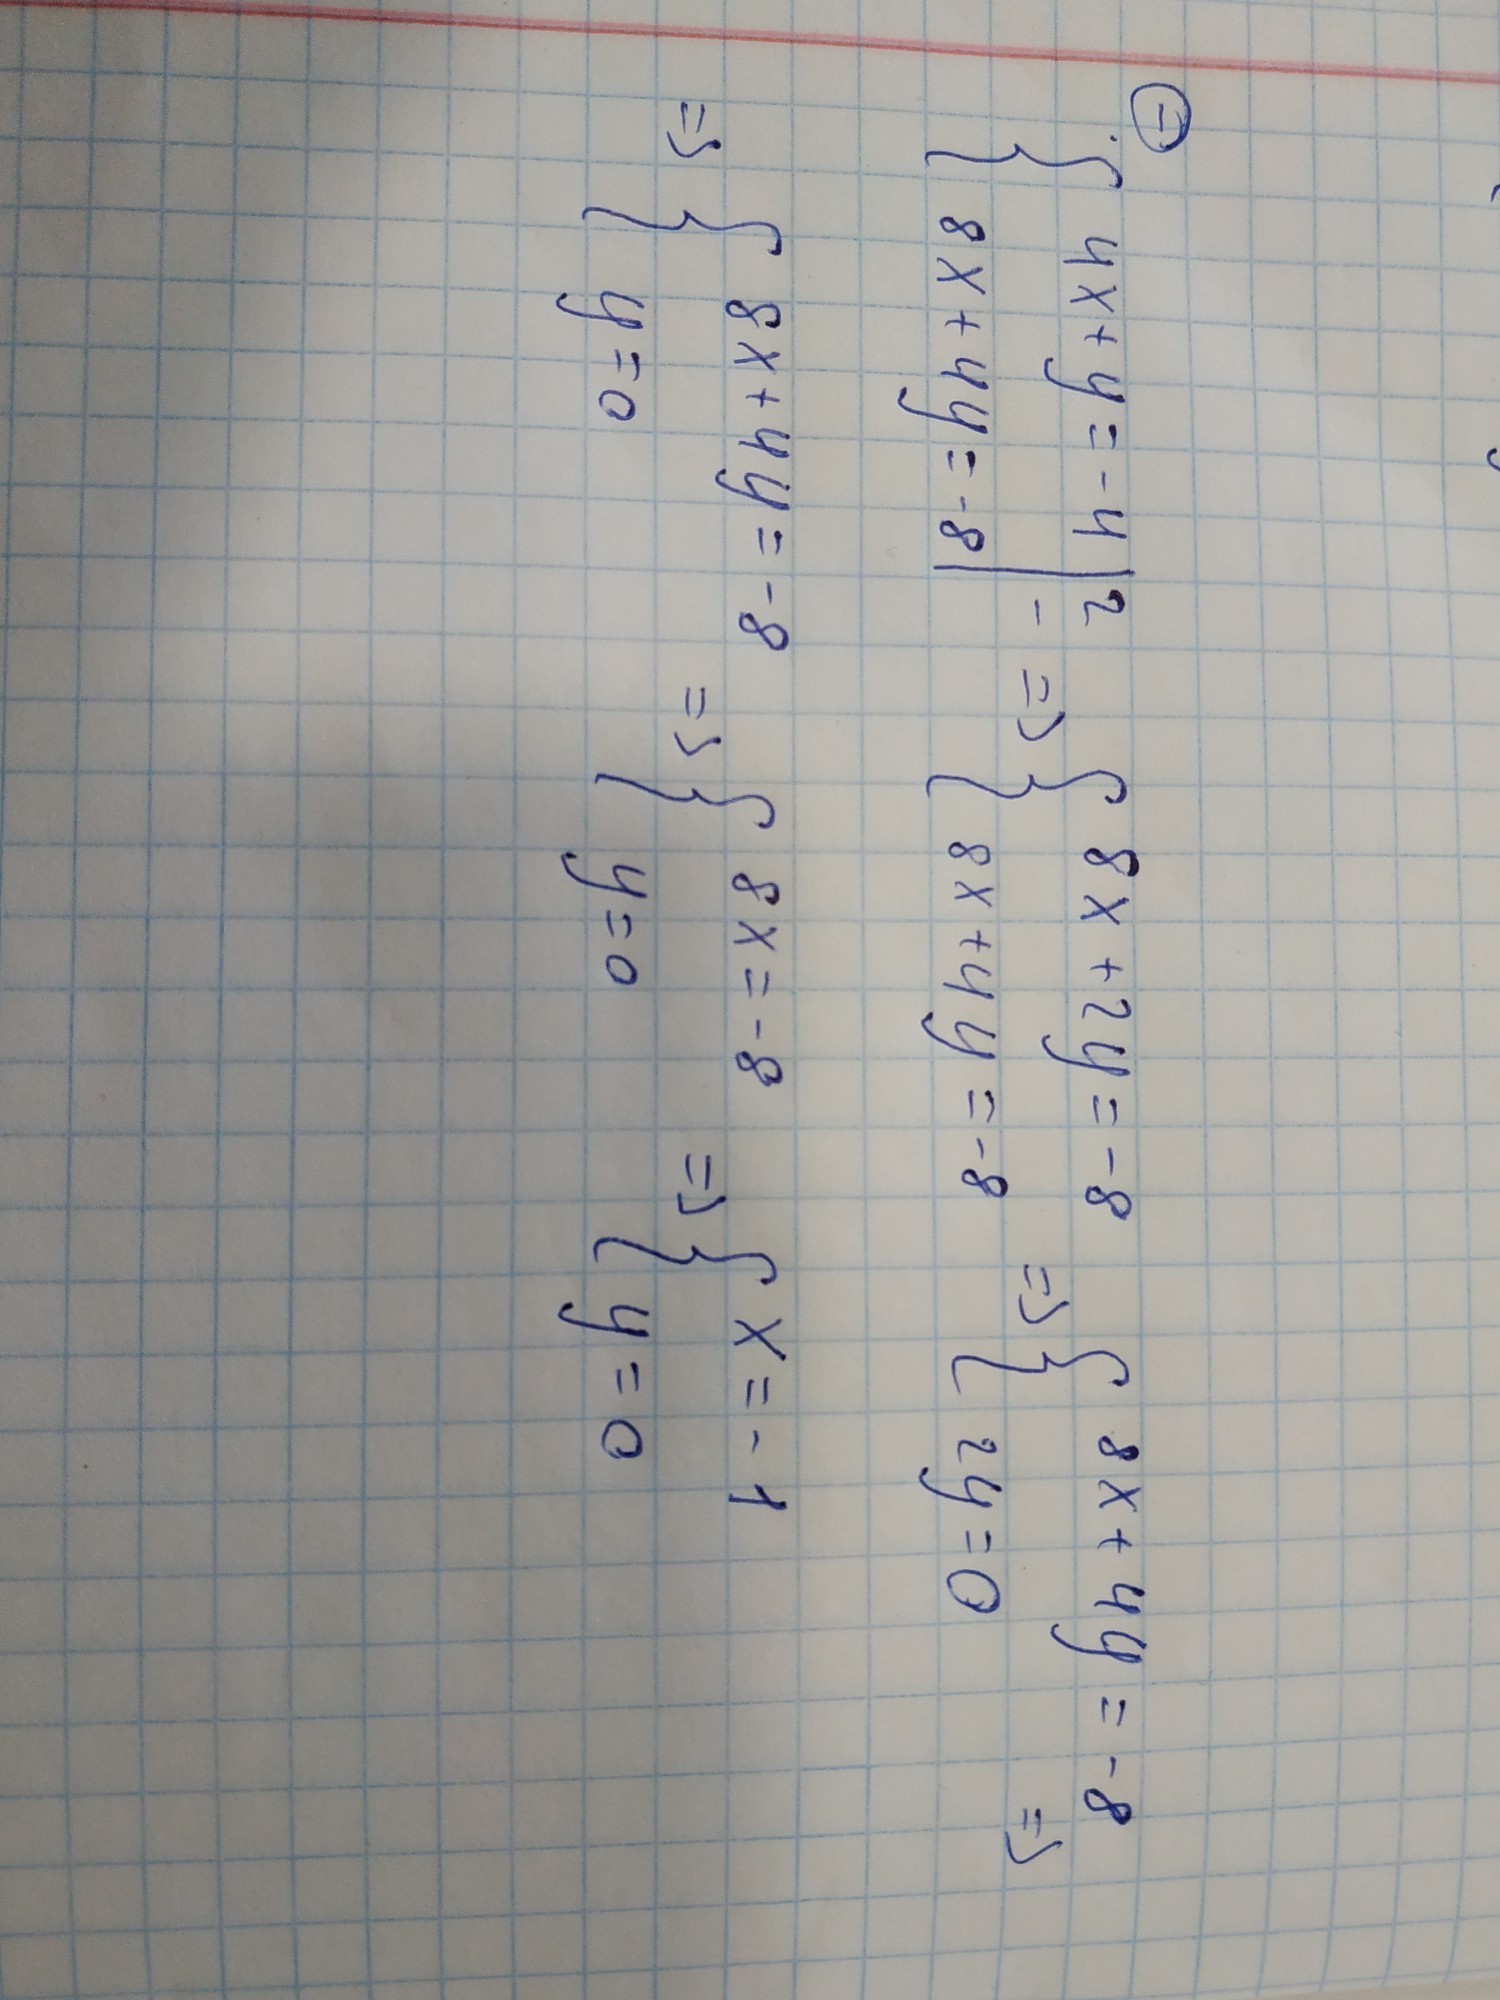 { 4x+y=-4 | 2
{ 8x+4y=-8 | - => { 8x+2y=-8
{ 8x+4y=-8 => { 8x+4y=-8
{ 2y=0 =>
=> { 8x+4y=-8
{ y=0 => { 8x=-8
{ y=0 => { x=-1
{ y=0